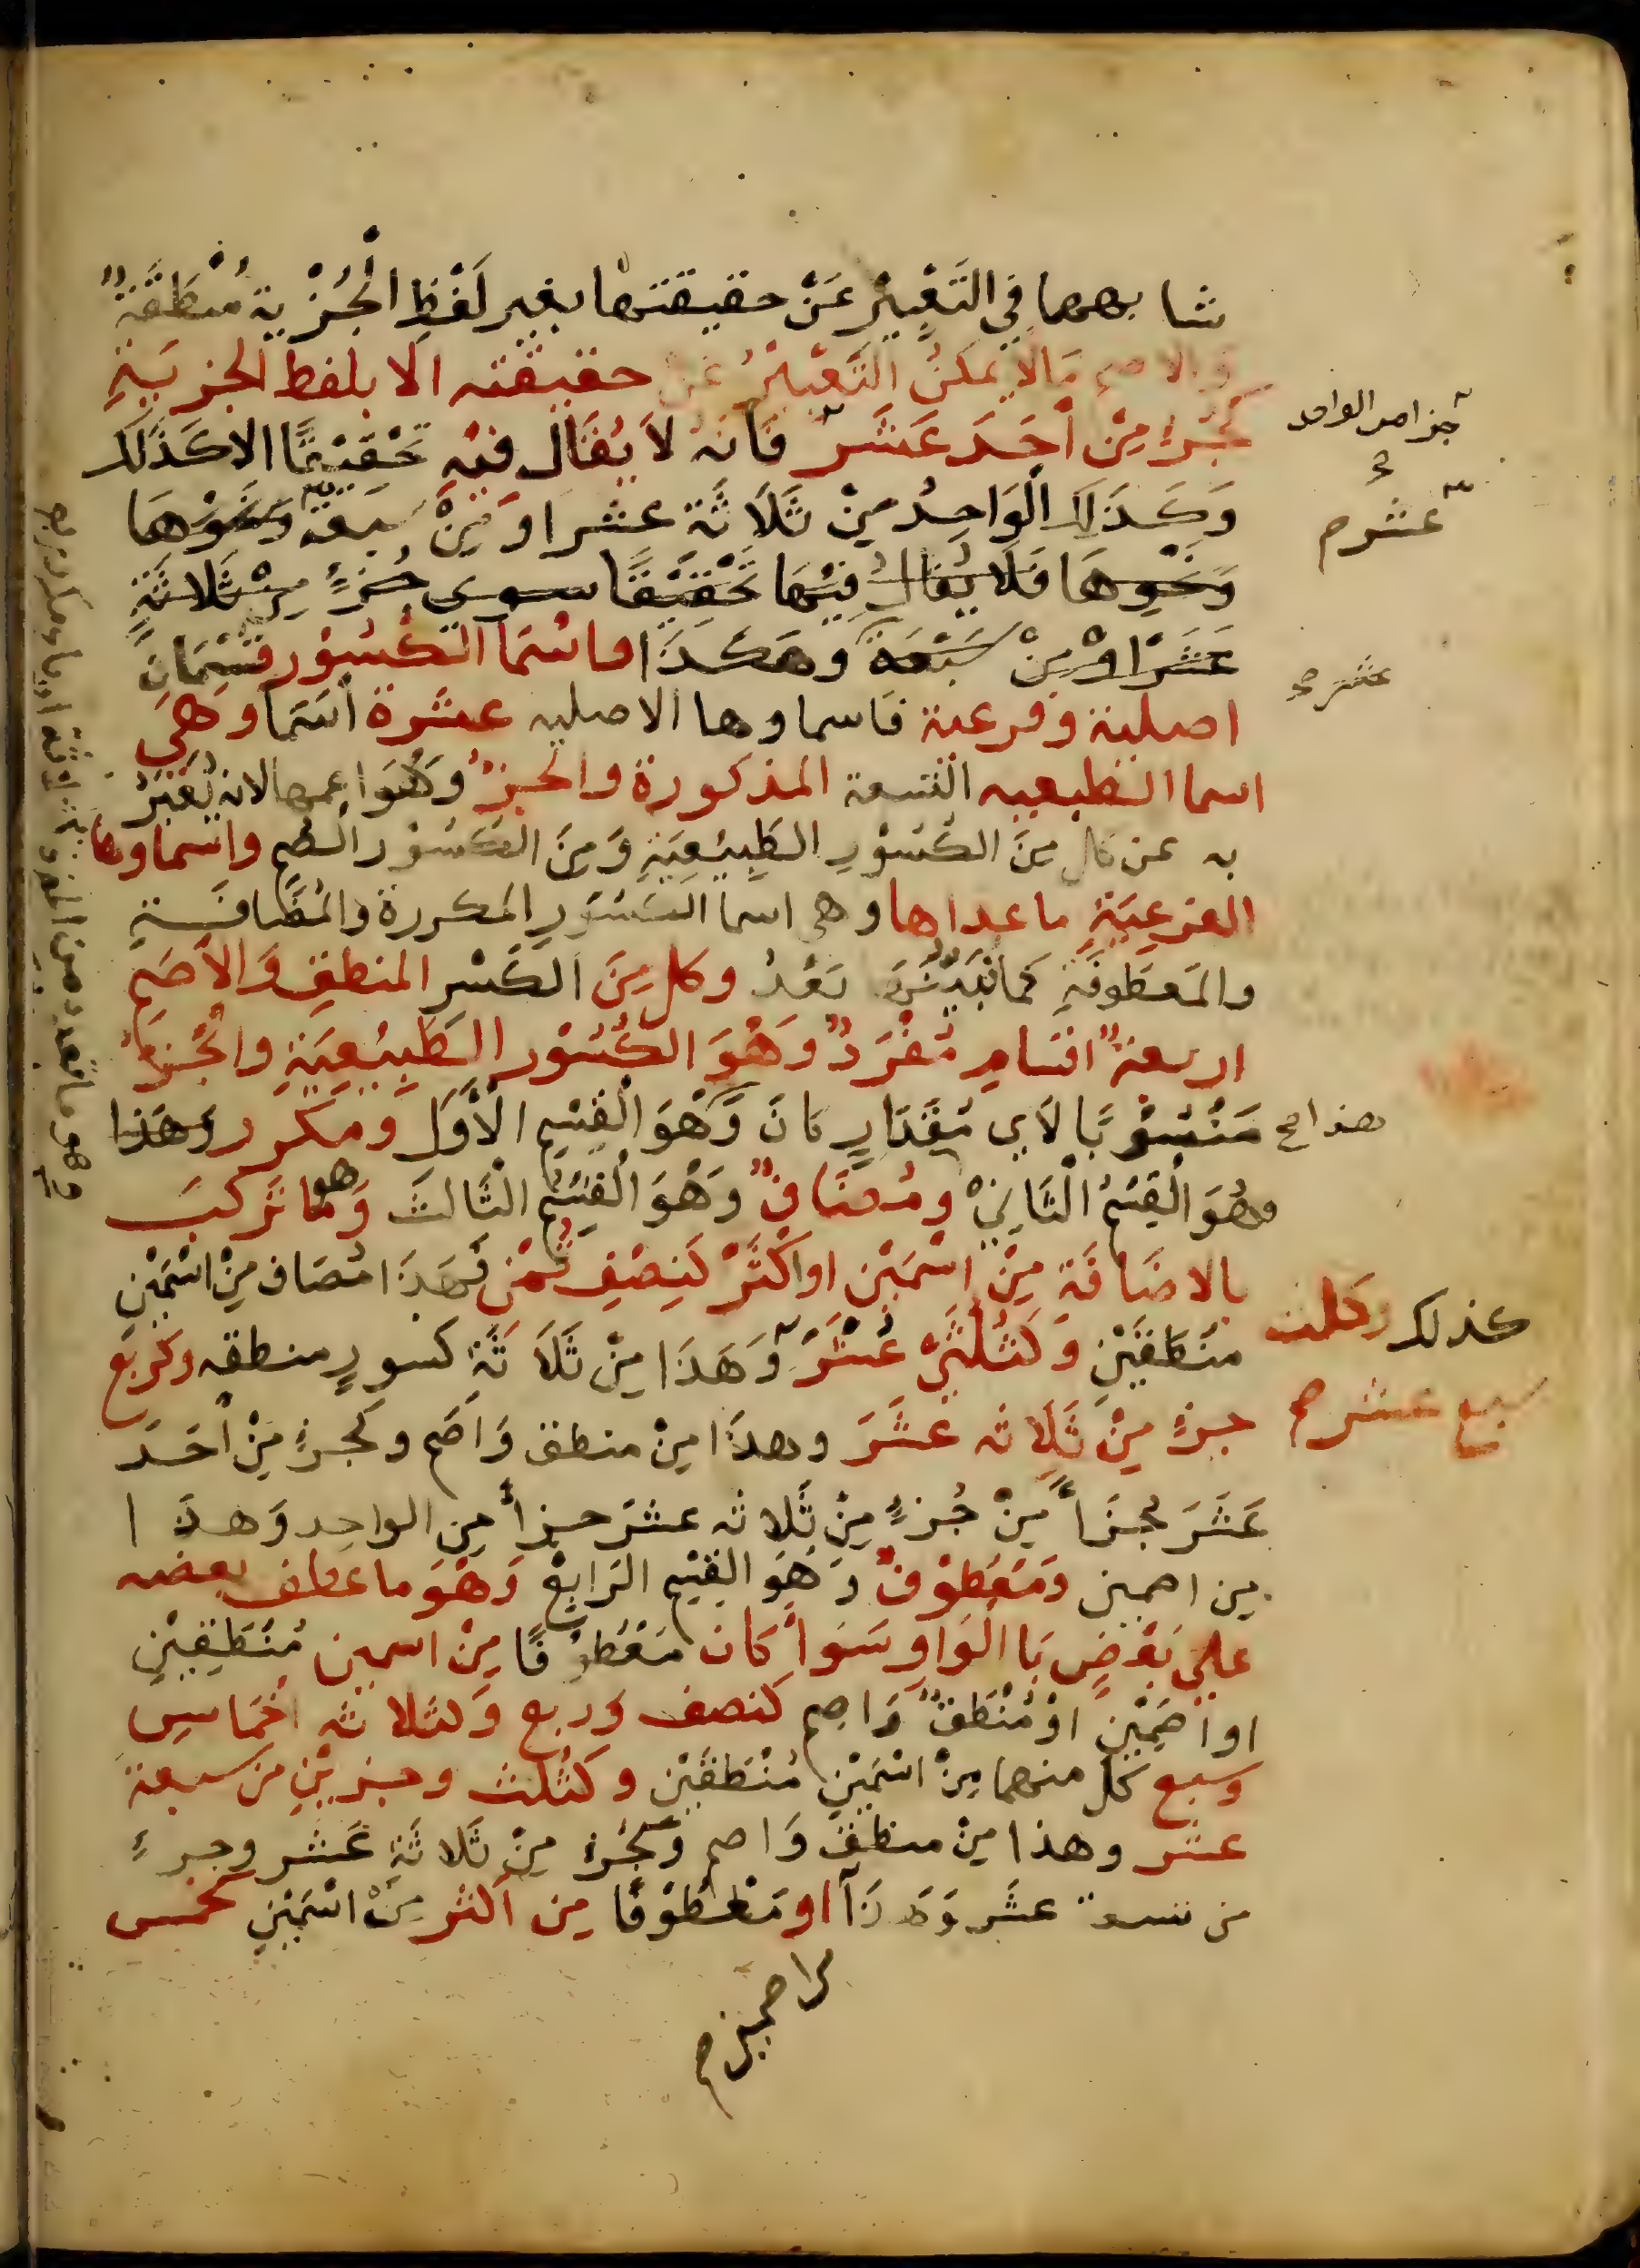 شابههما في التَّعْبِيْرِ عَنْ حقيقتها بغير لَفْظِ الْجُزْية مُنْطَقَةٌ
والاصم مَالا يمكنُ التَّعْبِيْرُ عن حقيقته الا بلفظ الجزييَةِ
كَجُزْءٍ مِنْ أَحَدَ عَشَرَ فَانَهُ لاَ يُقَالُ فيْهِ تَحْقِيْقًا الا كَذَلك
جزا من الواحد
وَكَذَلك الْوَاحِدُ مِنْ ثَلَاثَة عشر اوَ مِنْ سبعة وَنَحْوهَا
عشر م
وَنَحْوِهَا فَلَا يُقَالُ فِيْهَا تَحْقِيْقًا سوي جُزءٍ مِنْ ثَلَاثَةِ
عَشَرَ اوْ مِنْ سَبْعَة وهَكَذَا واسْمَا الكُسُوْر قِسْمَانِ
عشر صح
اصلية وفرعية فاسماوها الاصليه عشرة أسَمَا وَهِيَ
اسما الطبيعيه التسعة المذكورة والجزءُ وَهُوَ اعمها لانه يُعَبَرُ
به عن كل مِنَ الكُسُوْرِ الطَبِيْعِيَةِ وَمِنَ الكسُوْر الصُم واسماوها
الفرعيَةِ ما عداها وهي اسما الكسُوْرِ المكررة والمُضَافَةِ
والمَعطوفَةِ كما بَعْدُ وكل مِنَ الكَسْرِ المنطقِ وَالأَصَمِ
اربعة اقسامٍ مُفْرَدٌ وَهْوَ الكُسُوْر الطَبِيْعِيَةِ والجُزءِ
هذا صح
مَنْسُوْبًا لأي مِقْدَارٍ كانَ وَهْوَ الْقِسْمِ الأَوَلِ ومكرر وهَذَا
وهُوَ الْقِسْمُ الثَّانِيْ ومُضَافٌ وَهْوَ الْقِسْمُ الثَّالثَ وَهو مَا تَركبَ
بالاضَافَةِ مِنْ اسْمَيْنِ او اكْثَرْ كَنِصْفِ ثُمْن فَهَذَا مُضَاف مِنْ اسْمَيْنِ
كذلك وكثلث
منَطَقَيْنِ وَكَثُلُثَيْ عُشْرَ وَهَذَا مِنْ ثَلَاثَةِ كسورٍ منطقه وكربُع
سبع عشر م
جزءٍ مِنْ ثَلَاثه عَشَرَ وهذَا مِنْ منطق وَاصَم وكجزءٍ مِنْ أَحَدَ
عَشَرَ جزأً مِنْ جُزءٍ مِنْ ثَلاثه عشرَ جزأ مِن الواحِد وَهذا
مِن اصمين وَمَعْطُوْفٌ وَهُوَ القِسْمِ الرَابِعْ وَهْوَ ما عطف بعضه
علي بَعْضٍ بَاالْوَاوِ سَوَأ كَان مَعْطُوْفًا مِنْ اسمين مُنْطَقَيْنِ
او اصَمَيْنِ اوْ مُنْطَقٌ وَاصم كنصف وَربع وَكثلاثه أخمَاسِ
وسبع كلُ منهما مِنْ اسْمَيْنِ مُنْطَقَيْنِ وكثُلث وجزيْنِ من سبعة
عشر وهذا مِنْ منطق وَاصم وَكجُزءٍ مِنْ ثَلَاثَةِ عَشر وجزءٍ
من تسعة عشَر وَهَذَا او مَعْطُوْفًا مِن اكثر مِنْ اسْمَيْنِ كخمس
من اصمين م